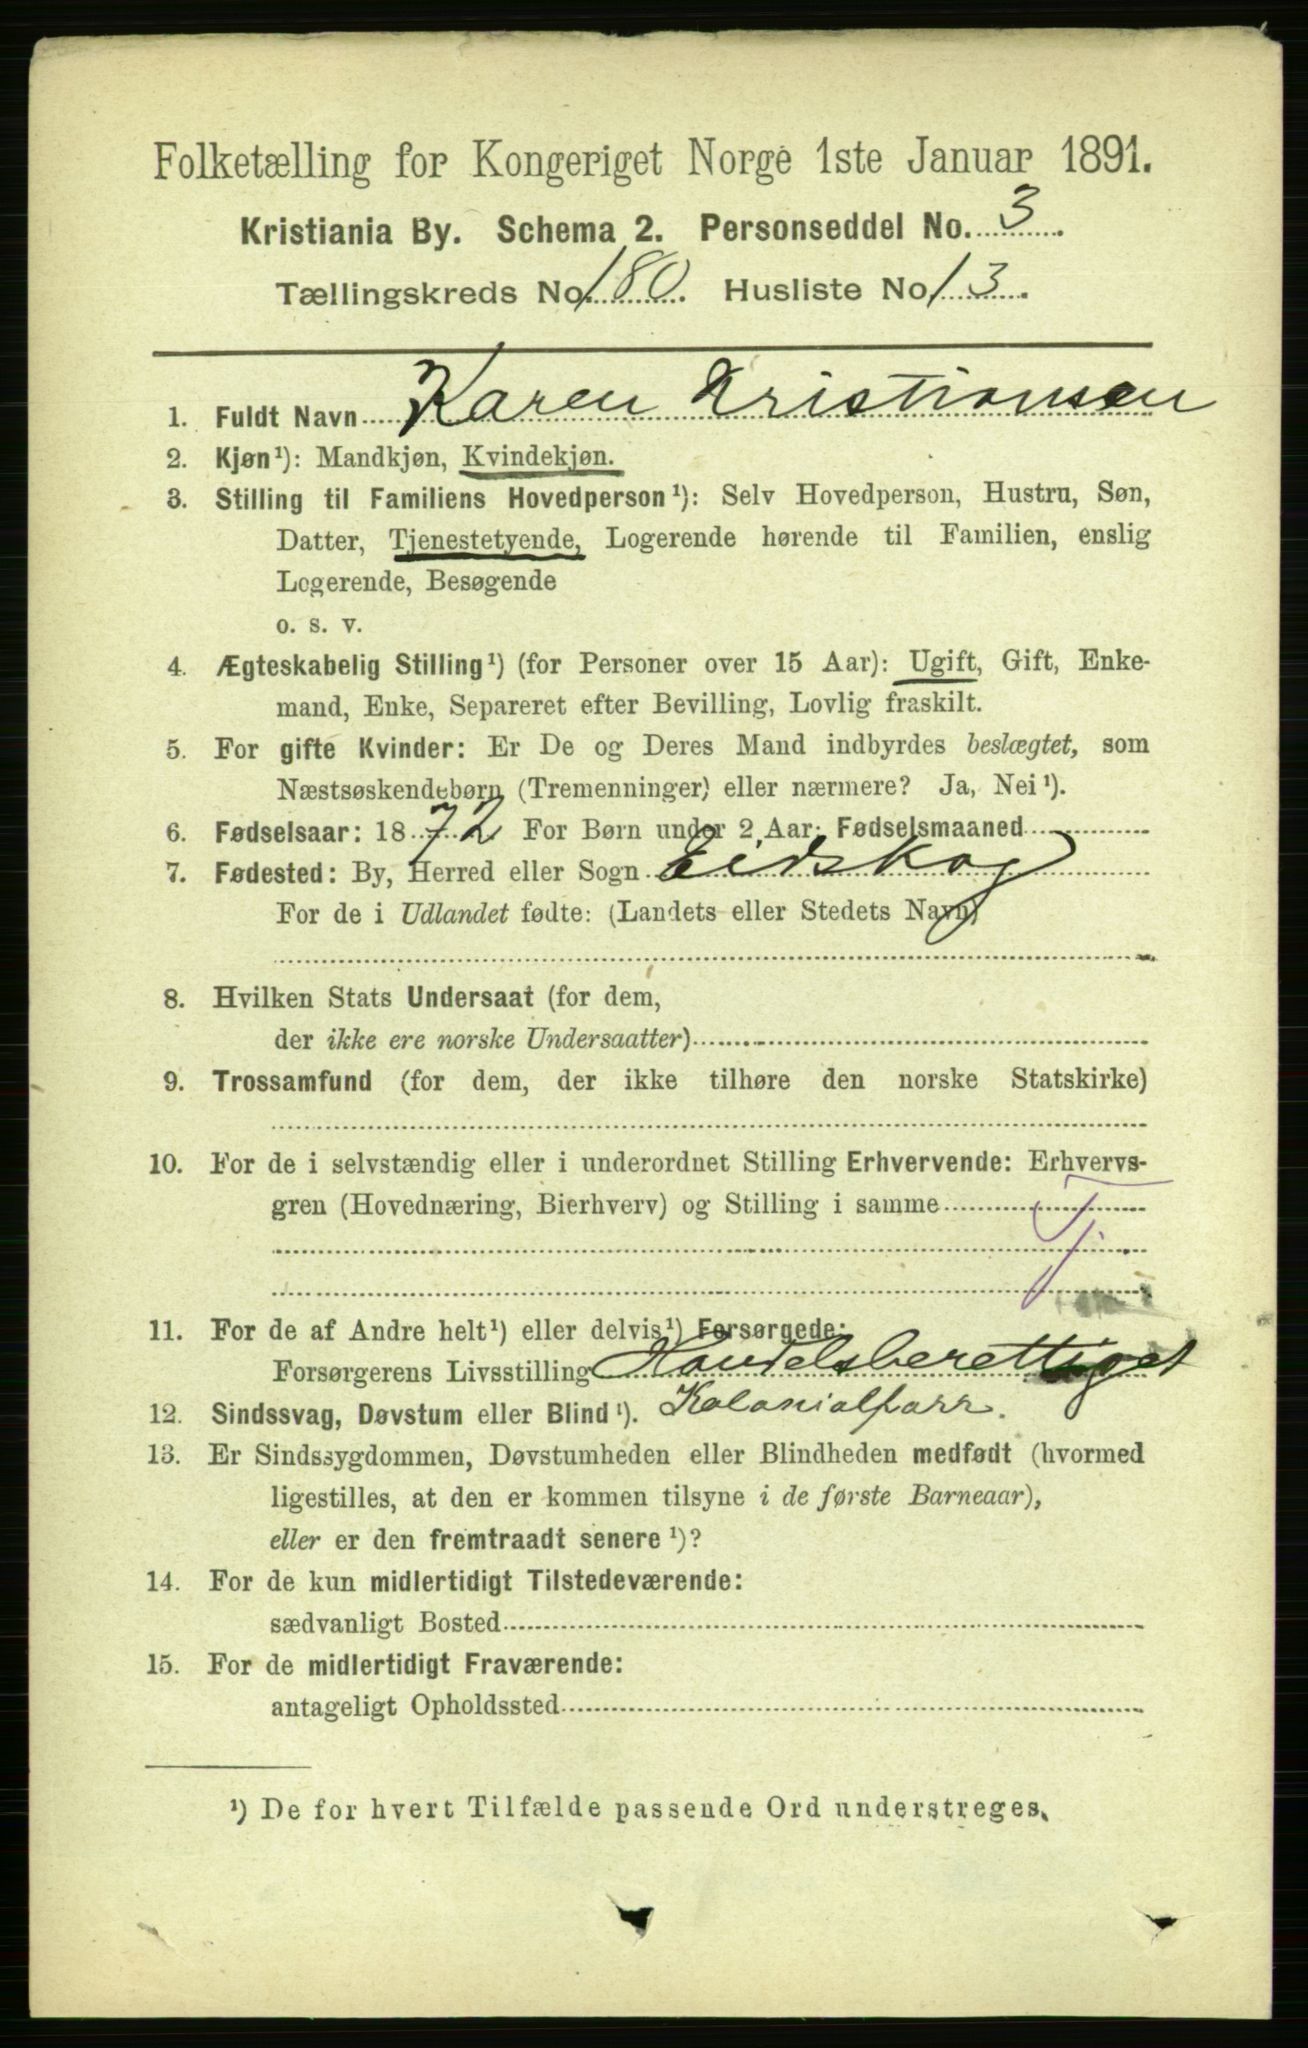 Folketælling for Kongeriget Norge 1ste Januar 1891.
Kristiania By. Schema 2. Personseddel No. 3.
Tællingskreds No. 180. Husliste No 13.
1. Fuldt Navn Karen Kristiansen
2. Kjøn¹): Mandkjøn, Kvindekjøn.
3. Stilling til Familiens Hovedperson¹): Selv Hovedperson, Hustru, Søn,
Datter, Tjenestetyende, Logerende hørende til Familien, enslig
Logerende, Besøgende
o. s. v.
4. Ægteskabelig Stilling¹) (for Personer over 15 Aar): Ugift, Gift, Enke-
mand, Enke, Separeret efter Bevilling, Lovlig fraskilt.
5. For gifte Kvinder: Er De og Deres Mand indbyrdes beslægtet, som
Næstsøskendebørn (Tremenninger) eller nærmere? Ja, Nei¹).
6. Fødselsaar: 1872 For Børn under 2 Aar: Fødselsmaaned
7. Fødested: By, Herred eller Sogn Eidskog
For de i Udlandet fødte: (Landets eller Stedets Navn)
8. Hvilken Stats Undersaat (for dem,
der ikke ere norske Undersaatter)
9. Trossamfund (for dem, der ikke tilhøre den norske Statskirke)
10. For de i selvstændig eller i underordnet Stilling Erhvervende: Erhvervs-
gren (Hovednæring, Bierhverv) og Stilling i samme
Tj.
11. For de af Andre helt¹) eller delvis¹) Forsørgede:
Forsørgerens Livsstilling Handelsberettiget
12. Sindssvag, Døvstum eller Blind¹). Kolonialforr.
13. Er Sindssygdommen, Døvstumheden eller Blindheden medfødt (hvormed
ligestilles, at den er kommen tilsyne i de første Barneaar),
eller er den fremtraadt senere¹)?
14. For de kun midlertidigt Tilstedeværende:
sædvanligt Bosted
15. For de midlertidigt Fraværende:
antageligt Opholdssted
¹) De for hvert Tilfælde passende Ord understreges.